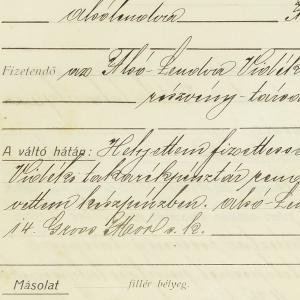 Alsólendva
Fizetendő az Alsó-Lendva Vidék
részvény-társa
A váltó hátán: Helyettem fizettess
Vidéki takarékpénztár ren
vettem készpénzben. Alsó-Len
14. Gross Mór s. k.
Másolat fillér bélyeg.